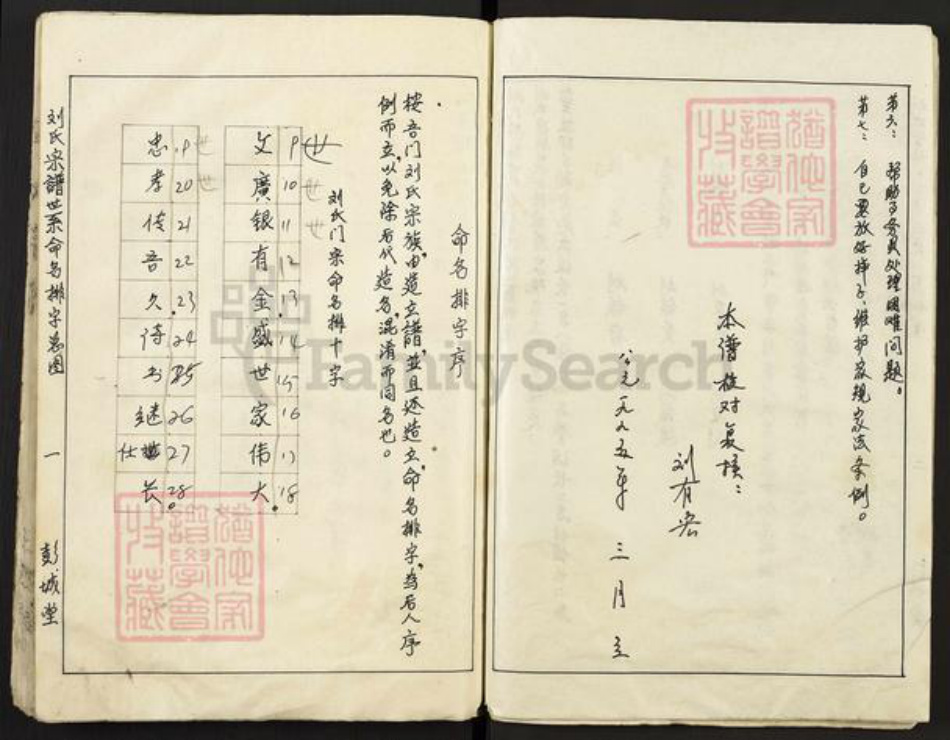 第六：帮助为务员处理困难问题。
第七：自己要放好样子，维护家规家法条例。
本谱校对复核：
刘有宏
公元一九九五年 三月 立
猶他家譜學會收藏
命名排字序
按吾门刘氏宗族，由造立譜，並且还造立命名排字，为后人序
例而立，以免除后代造名，混淆而同名也。
刘氏门宗命名排十字
文 19世
廣 10世
银 11世
有 12
金 13
盛 14
世 15
家 16
伟 17
大 18
忠 19世
孝 20世
传 21
吾 22
久 23
诗 24
书 25
继 26
仕 27
长 28
猶他家譜學會收藏
刘氏宗譜世系命名排字总图 一 彭城堂
FamilySearch